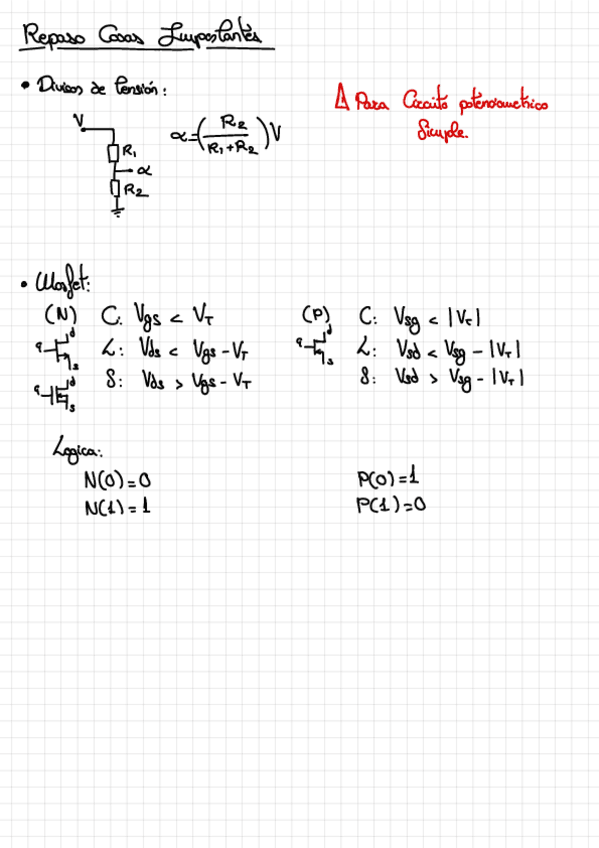 Repaso Cosas Importantes
• Divisor de Tensión:
V
R1
α
R2
α=(R2/(R1+R2))V
Δ Para Circuito potenciometrico
Simple.
• Mosfet:
(N) C: Vgs < VT
d
g
s
L: Vds < Vgs - VT
S: Vds > Vgs - VT
d
g
s
(P) C: Vsg < |Vt|
d
g
s
L: Vsd < Vsg - |VT|
S: Vsd > Vsg - |VT|
Logica:
N(0)=0
N(1)=1
P(0)=1
P(1)=0